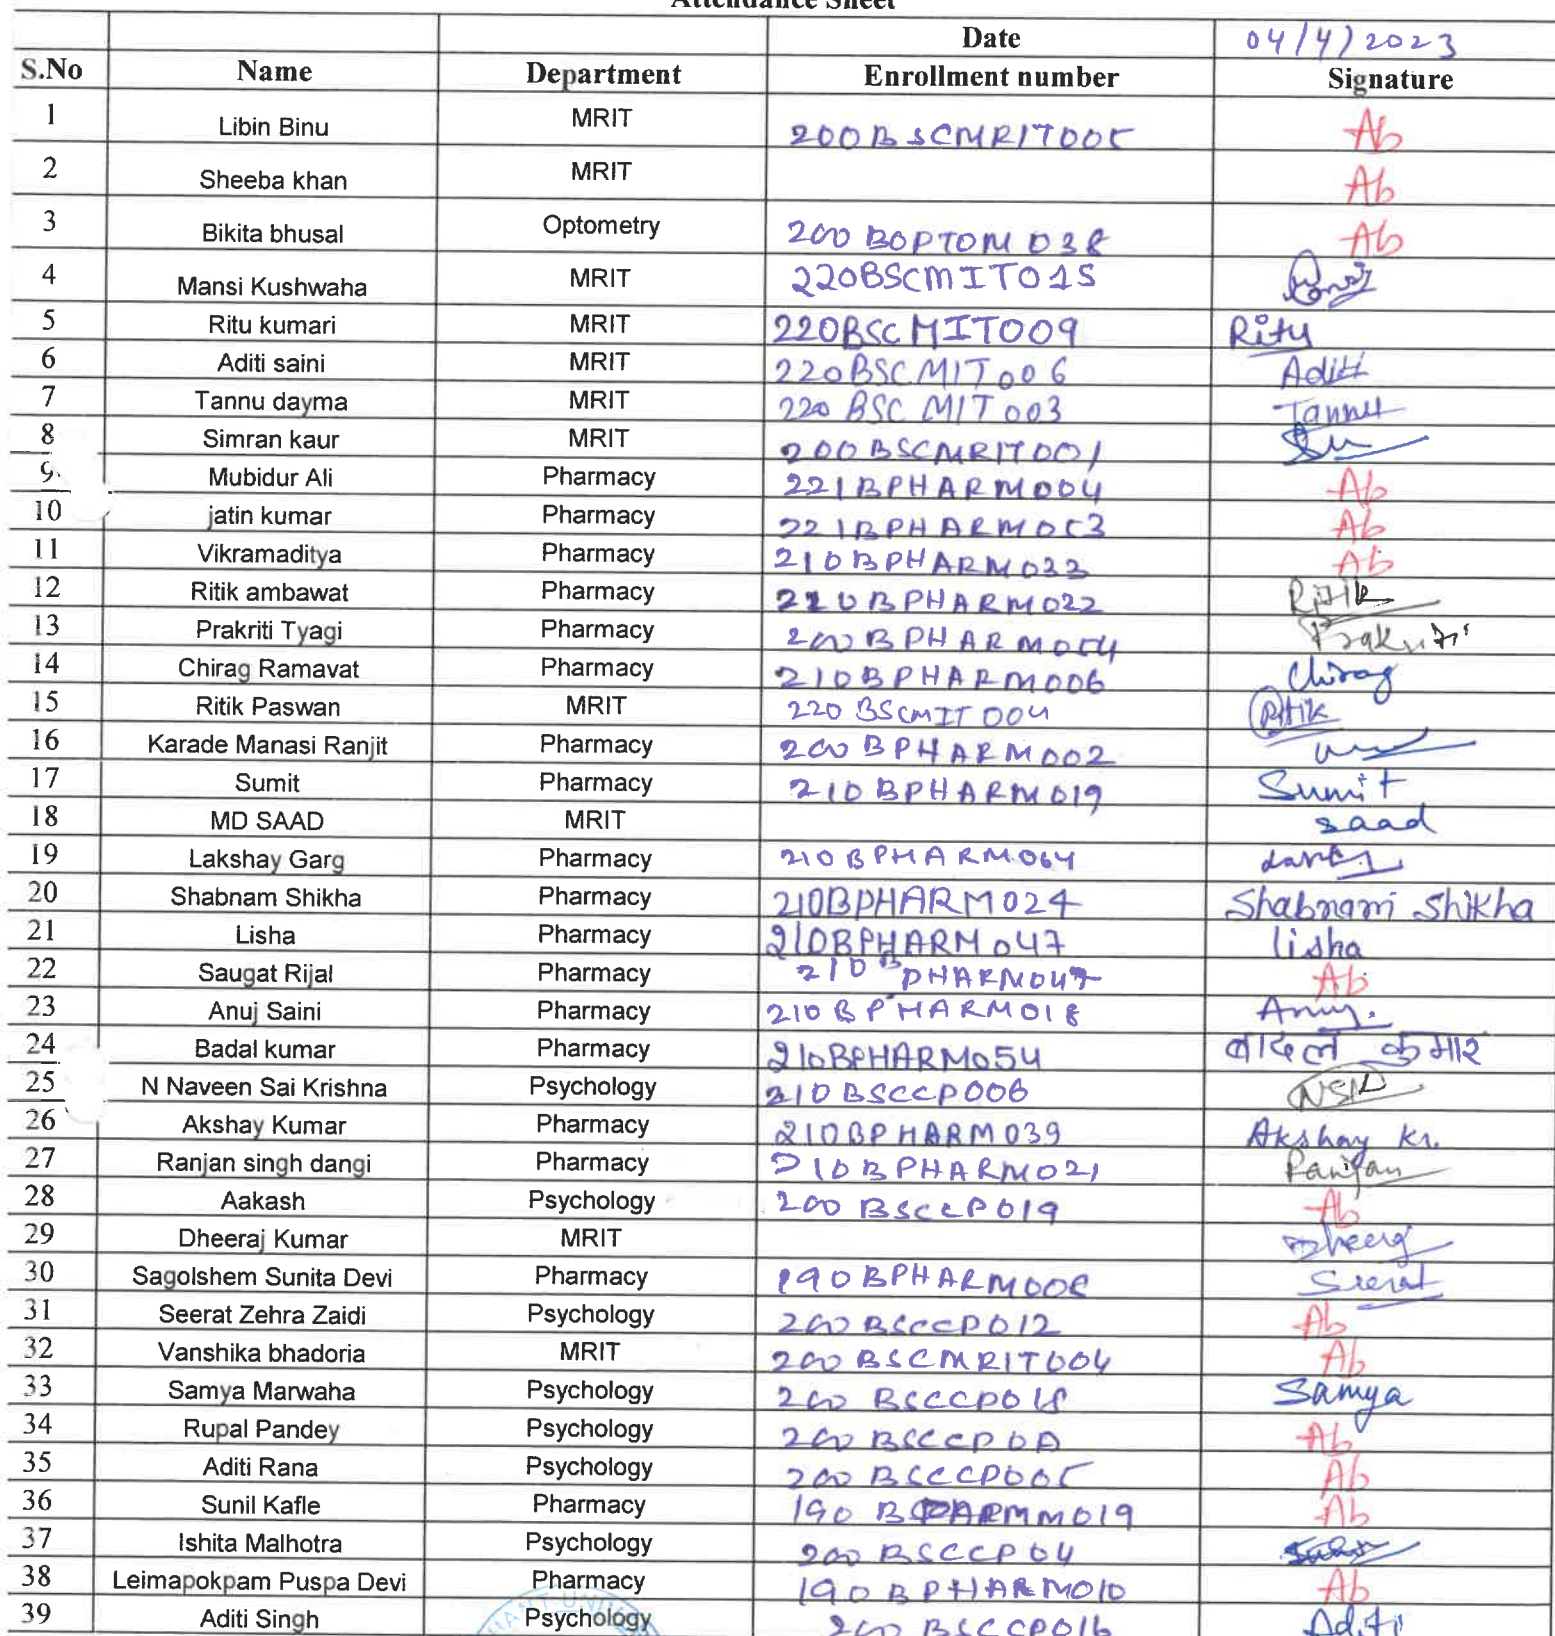 Attendance Sheet
Date 04/4/2023
S.No Name Department Enrollment number Signature
1 Libin Binu MRIT 200BSCMRIT005 Ab
2 Sheeba khan MRIT Ab
3 Bikita bhusal Optometry 200BOPTOM038 Ab
4 Mansi Kushwaha MRIT 220BSCMIT015
5 Ritu kumari MRIT 220BSCMIT009 Ritu
6 Aditi saini MRIT 220BSCMIT006 Aditi
7 Tannu dayma MRIT 220BSCMIT003 Tannu
8 Simran kaur MRIT 200BSCMRIT001
9 Mubidur Ali Pharmacy 221BPHARM004 Ab
10 jatin kumar Pharmacy 221BPHARM053 Ab
11 Vikramaditya Pharmacy 210BPHARM033 Ab
12 Ritik ambawat Pharmacy 220BPHARM022 Ritik
13 Prakriti Tyagi Pharmacy 200BPHARM054 Prakriti
14 Chirag Ramavat Pharmacy 210BPHARM006 Chirag
15 Ritik Paswan MRIT 220BSCMIT004 Ritik
16 Karade Manasi Ranjit Pharmacy 200BPHARM002
17 Sumit Pharmacy 210BPHARM019 Sumit
18 MD SAAD MRIT saad
19 Lakshay Garg Pharmacy 210BPHARM064
20 Shabnam Shikha Pharmacy 210BPHARM024 Shabnam Shikha
21 Lisha Pharmacy 210BPHARM047 lisha
22 Saugat Rijal Pharmacy 210BPHARM047 Ab
23 Anuj Saini Pharmacy 210BPHARM018 Anuj.
24 Badal kumar Pharmacy 210BPHARM054 बादल कुमार
25 N Naveen Sai Krishna Psychology 210BSCCP006
26 Akshay Kumar Pharmacy 210BPHARM039 Akshay Kr.
27 Ranjan singh dangi Pharmacy 210BPHARM021 Ranjan
28 Aakash Psychology 200BSCCP019 Ab
29 Dheeraj Kumar MRIT Dheeraj
30 Sagolshem Sunita Devi Pharmacy 190BPHARM008 Seerat
31 Seerat Zehra Zaidi Psychology 200BSCCP012 Ab
32 Vanshika bhadoria MRIT 200BSCMRIT004 Ab
33 Samya Marwaha Psychology 200BSCCP018 Samya
34 Rupal Pandey Psychology Ab
35 Aditi Rana Psychology 200BSCCP005 Ab
36 Sunil Kafle Pharmacy Ab
37 Ishita Malhotra Psychology 200BSCCP04
38 Leimapokpam Puspa Devi Pharmacy 190BPHARM010 Ab
39 Aditi Singh Psychology 200BSCCP016 Aditi